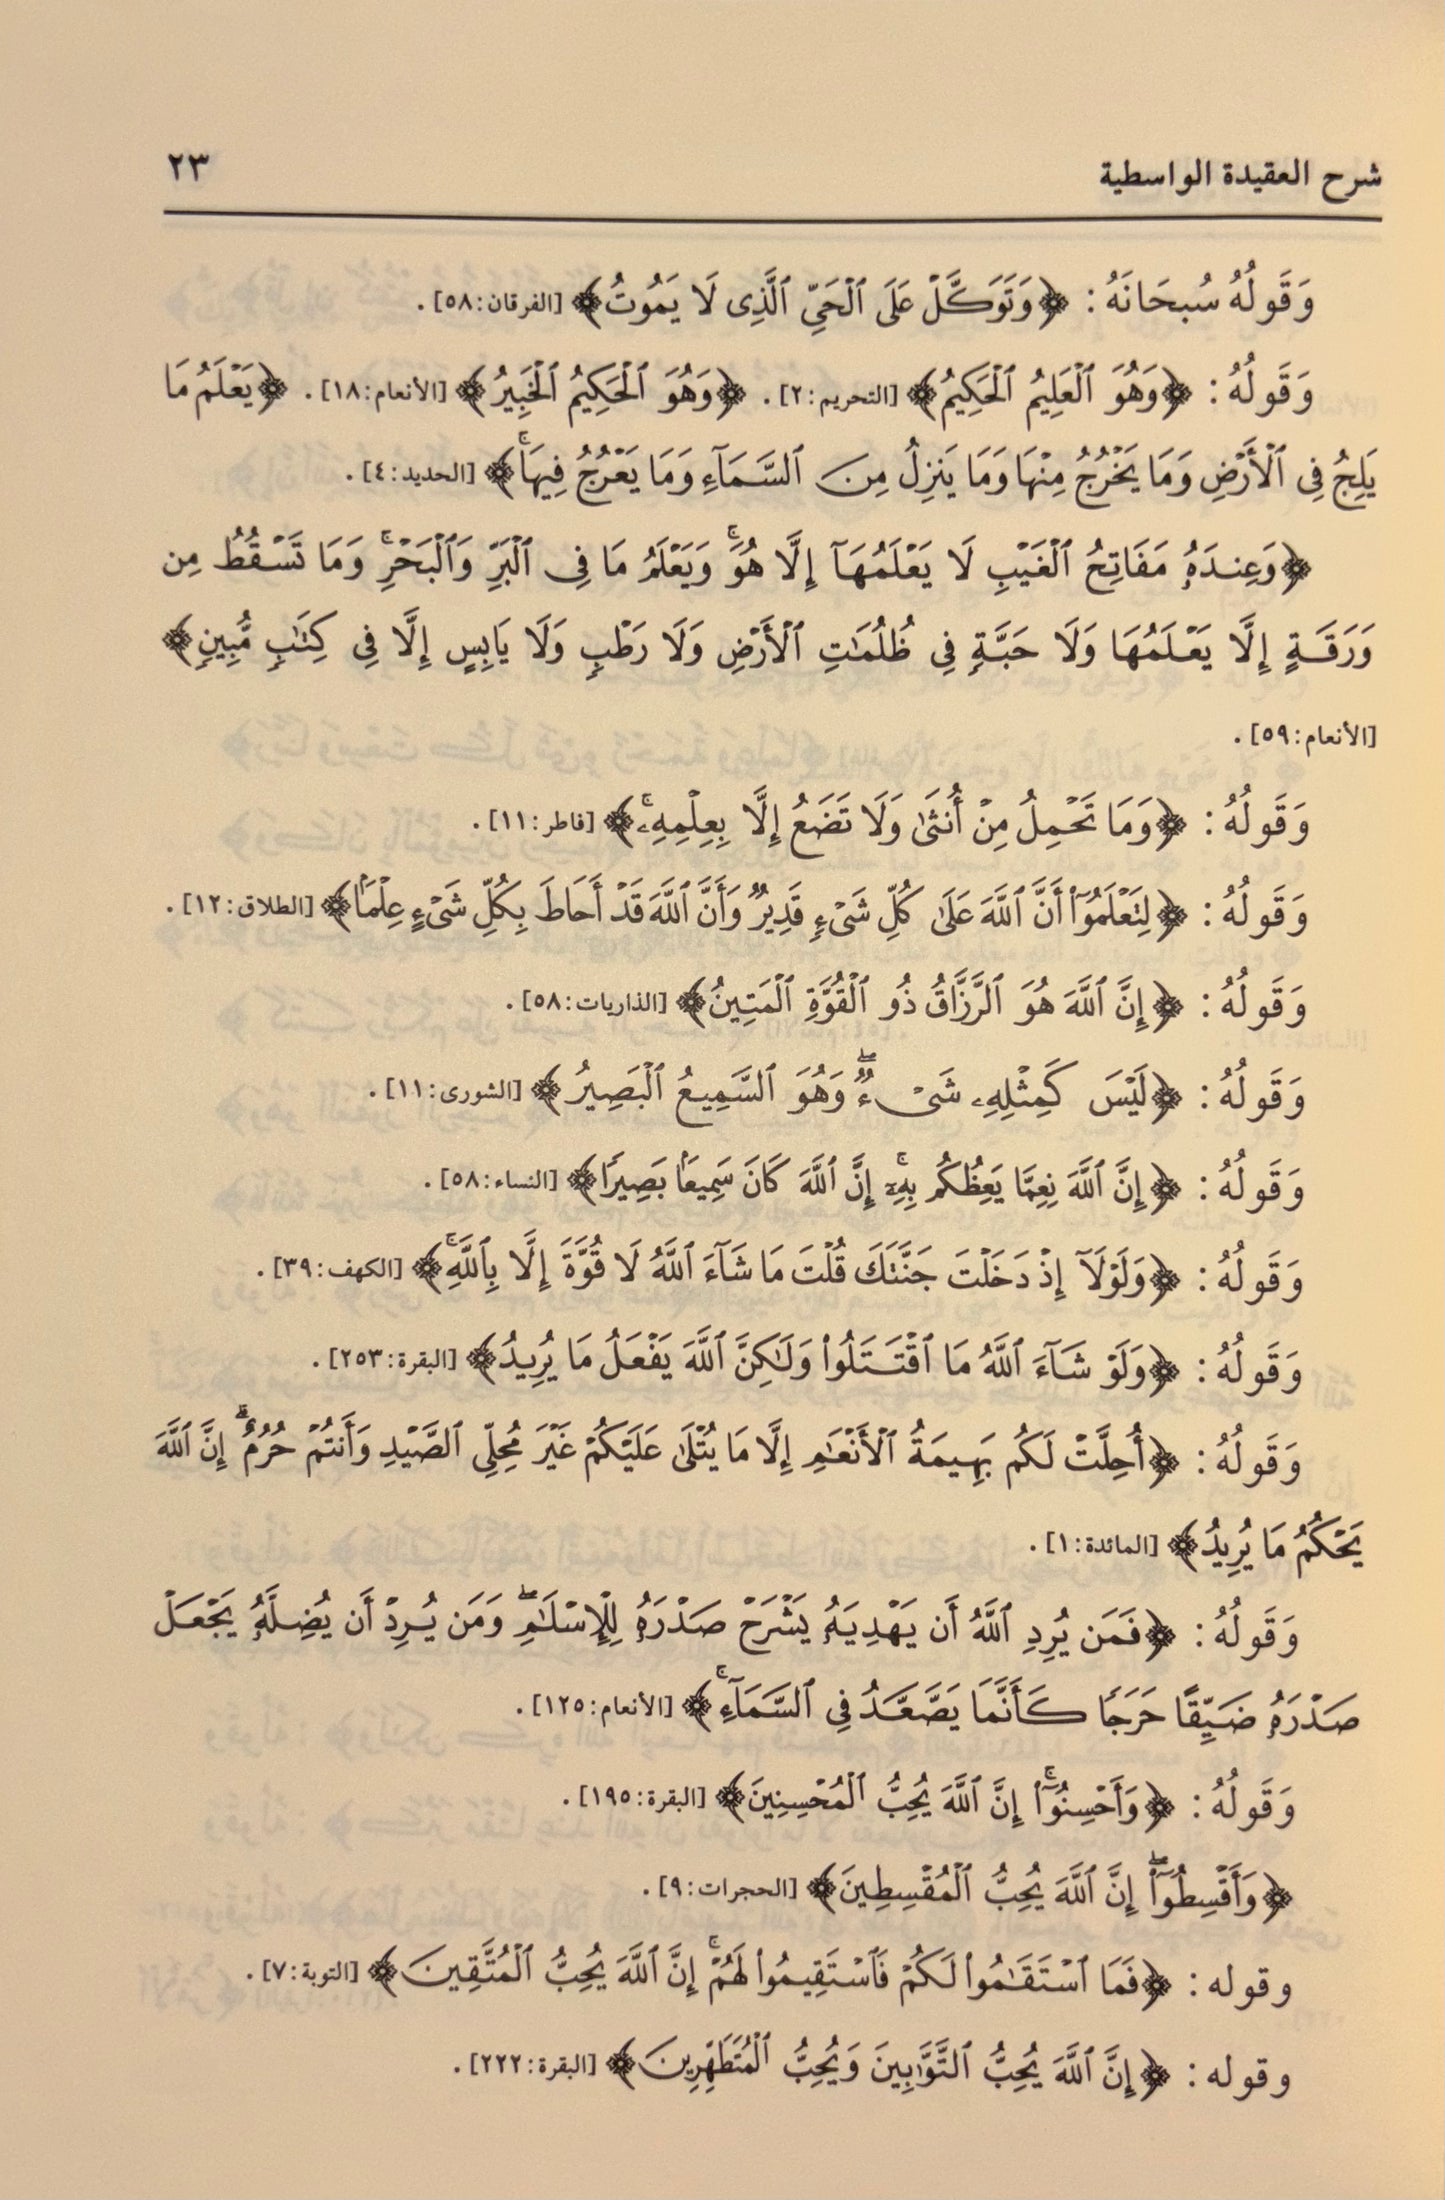 شرح العقيدة الواسطية ٢٣
وَقَولُهُ سُبحَانَهُ: ﴿وَتَوَكَّلۡ عَلَى ٱلۡحَيِّ ٱلَّذِى لَا يَمُوتُ﴾ [الفرقان:٥٨].
وَقَولُهُ: ﴿وَهُوَ ٱلۡعَلِيمُ ٱلۡحَكِيمُ﴾ [التحريم:٢]. ﴿وَهُوَ ٱلۡحَكِيمُ ٱلۡخَبِيرُ﴾ [الأنعام:١٨]. ﴿يَعۡلَمُ مَا
يَلِجُ فِى ٱلۡأَرۡضِ وَمَا يَخۡرُجُ مِنۡهَا وَمَا يَنزِلُ مِنَ ٱلسَّمَآءِ وَمَا يَعۡرُجُ فِيهَاۚ﴾ [الحديد:٤].
﴿وَعِندَهُۥ مَفَاتِحُ ٱلۡغَيۡبِ لَا يَعۡلَمُهَآ إِلَّا هُوَۚ وَيَعۡلَمُ مَا فِى ٱلۡبَرِّ وَٱلۡبَحۡرِۚ وَمَا تَسۡقُطُ مِن
وَرَقَةٍ إِلَّا يَعۡلَمُهَا وَلَا حَبَّةٍ فِى ظُلُمَٰتِ ٱلۡأَرۡضِ وَلَا رَطۡبٍ وَلَا يَابِسٍ إِلَّا فِى كِتَٰبٍ مُّبِينٍ﴾
[الأنعام:٥٩].
وَقَولُهُ: ﴿وَمَا تَحۡمِلُ مِنۡ أُنثَىٰ وَلَا تَضَعُ إِلَّا بِعِلۡمِهِۦۚ﴾ [فاطر:١١].
وَقَولُهُ: ﴿لِتَعۡلَمُوٓاْ أَنَّ ٱللَّهَ عَلَىٰ كُلِّ شَىۡءٍ قَدِيرٌ وَأَنَّ ٱللَّهَ قَدۡ أَحَاطَ بِكُلِّ شَىۡءٍ عِلۡمَۢا﴾ [الطلاق:١٢].
وَقَولُهُ: ﴿إِنَّ ٱللَّهَ هُوَ ٱلرَّزَّاقُ ذُو ٱلۡقُوَّةِ ٱلۡمَتِينُ﴾ [الذاريات:٥٨].
وَقَولُهُ: ﴿لَيۡسَ كَمِثۡلِهِۦ شَىۡءٌۖ وَهُوَ ٱلسَّمِيعُ ٱلۡبَصِيرُ﴾ [الشورى:١١].
وَقَولُهُ: ﴿إِنَّ ٱللَّهَ نِعِمَّا يَعِظُكُم بِهِۦٓۚ إِنَّ ٱللَّهَ كَانَ سَمِيعَۢا بَصِيرًا﴾ [النساء:٥٨].
وَقَولُهُ: ﴿وَلَوۡلَآ إِذۡ دَخَلۡتَ جَنَّتَكَ قُلۡتَ مَا شَآءَ ٱللَّهُ لَا قُوَّةَ إِلَّا بِٱللَّهِۚ﴾ [الكهف:٣٩].
وَقَولُهُ: ﴿وَلَوۡ شَآءَ ٱللَّهُ مَا ٱقۡتَتَلُواْ وَلَٰكِنَّ ٱللَّهَ يَفۡعَلُ مَا يُرِيدُ﴾ [البقرة:٢٥٣].
وَقَولُهُ: ﴿أُحِلَّتۡ لَكُم بَهِيمَةُ ٱلۡأَنۡعَٰمِ إِلَّا مَا يُتۡلَىٰ عَلَيۡكُمۡ غَيۡرَ مُحِلِّى ٱلصَّيۡدِ وَأَنتُمۡ حُرُمٌۗ إِنَّ ٱللَّهَ
يَحۡكُمُ مَا يُرِيدُ﴾ [المائدة:١].
وَقَولُهُ: ﴿فَمَن يُرِدِ ٱللَّهُ أَن يَهۡدِيَهُۥ يَشۡرَحۡ صَدۡرَهُۥ لِلۡإِسۡلَٰمِۖ وَمَن يُرِدۡ أَن يُضِلَّهُۥ يَجۡعَلۡ
صَدۡرَهُۥ ضَيِّقًا حَرَجًا كَأَنَّمَا يَصَّعَّدُ فِى ٱلسَّمَآءِۚ﴾ [الأنعام:١٢٥].
وَقَولُهُ: ﴿وَأَحۡسِنُوٓاْۚ إِنَّ ٱللَّهَ يُحِبُّ ٱلۡمُحۡسِنِينَ﴾ [البقرة:١٩٥].
﴿وَأَقۡسِطُوٓاْۖ إِنَّ ٱللَّهَ يُحِبُّ ٱلۡمُقۡسِطِينَ﴾ [الحجرات:٩].
وقوله: ﴿فَمَا ٱسۡتَقَٰمُواْ لَكُمۡ فَٱسۡتَقِيمُواْ لَهُمۡۚ إِنَّ ٱللَّهَ يُحِبُّ ٱلۡمُتَّقِينَ﴾ [التوبة:٧].
وقوله: ﴿إِنَّ ٱللَّهَ يُحِبُّ ٱلتَّوَّٰبِينَ وَيُحِبُّ ٱلۡمُتَطَهِّرِينَ﴾ [البقرة:٢٢٢].